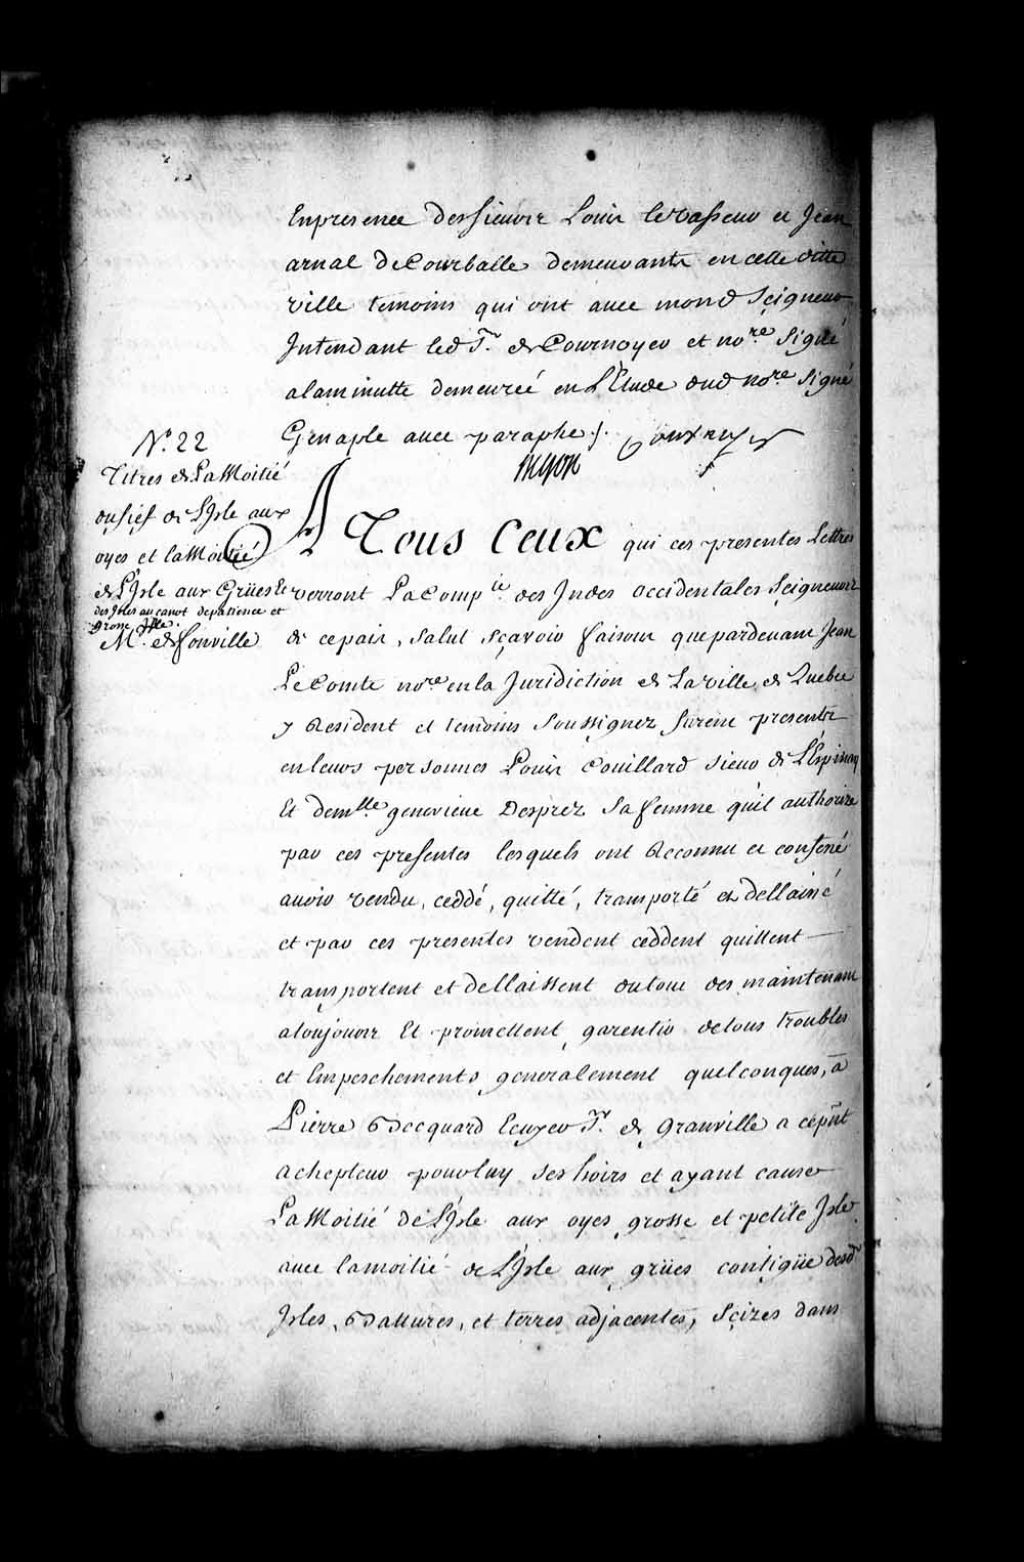 Enpresence des sieurs Louis levasseur et Jean
arnal de Courballe demeurants en cette ditte
ville temoins qui ont avec mond Seigneur
Intendant led Sr. de Cournoyer et nore signé
alaminutte demeureé en L'Etude dud nore Signé
Genaple avec paraphe ./.
N.o 22
Titres de La Moitié
du fief de L'Isle aux
oyes et la Moitié
de L'Isle aux Grües et
des Isles au canot depatience et
grosse Isle.
Mr. de fonville
A Tous Ceux qui ces presentes Lettres
verront La Comp.ie des Indes occidentales Seigneurs
de cepais, Salut Sçavoir faisons que pardevant Jean
Le Comte nore en la Juridiction de La ville de Quebec
y Resident et temoins Soussignez furent presents
en leurs personnes Louis Couillard sieur de L'Espinay
Et demlle. genevieve Desprez Sa femme quil authorise
par ces presentes lesquels ont Reconnu et confessé
avoir vendu, ceddé, quitté, transporté et dellaissé
et par ces presentes vendent ceddent quittent
transportent et dellaissent dutout des maintenant
atoujours Et promettent garentir detous troubles
et Empeschements generalement quelconques, a
Pierre Becquard Ecuyer Sr. de granville a cepñt
achepteur pourluy ses hoirs et ayant cause
La Moitié de L'Isle aux oyes grosse et petite Isle
avec lamoitié de L'Isle aux grües contigüe desd
Isles, Battures, et terres adjacentes, Scizes dans